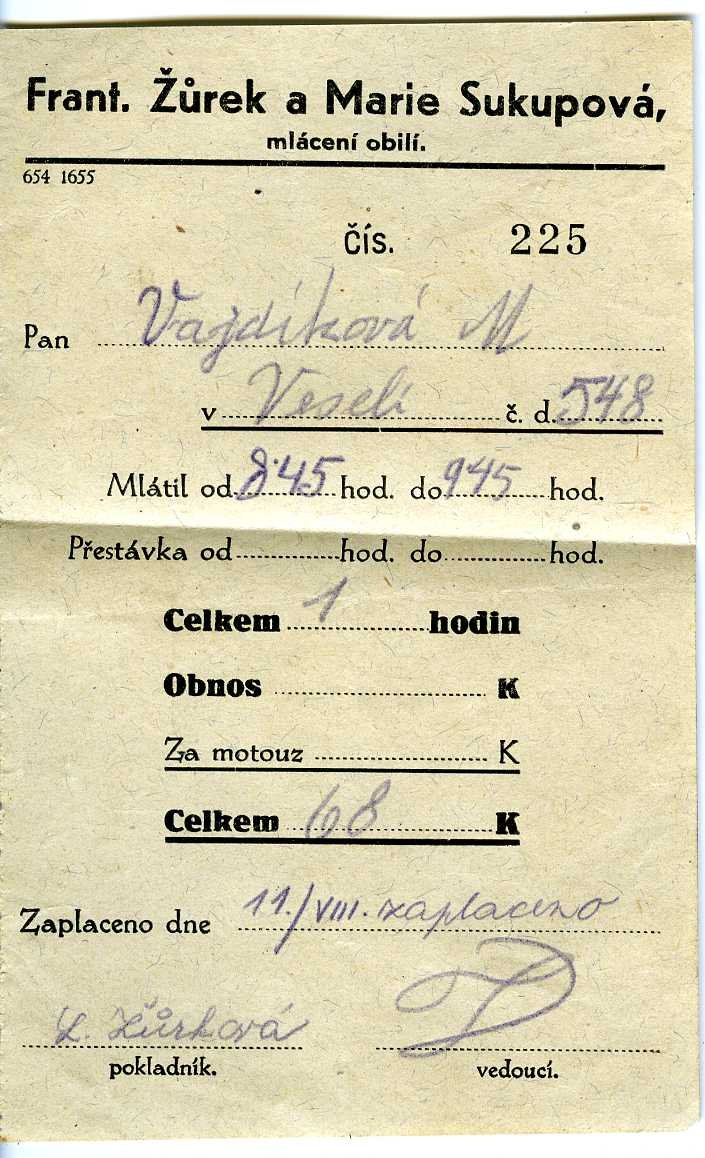 Frant. Žůrek a Marie Sukupová,
mlácení obilí.
654 1655
čís. 225
Pan Vajdíková M
v Veselí č. d. 548
Mlátil od 845 hod. do 945 hod.
Přestávka od hod. do hod.
Celkem 1 hodin
Obnos K
Za motouz K
Celkem 68 K
Zaplaceno dne 11./VIII. zaplaceno
L. Žůrková
pokladník. vedoucí.